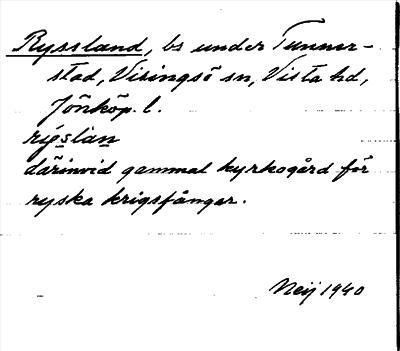 Ryssland, bs under Tunner-
stad, Visingsö sn, Vista hd,
Jönköp. l.
rysslan
därinvid gammal kyrkogård för
ryska krigsfångar.
Neij 1940